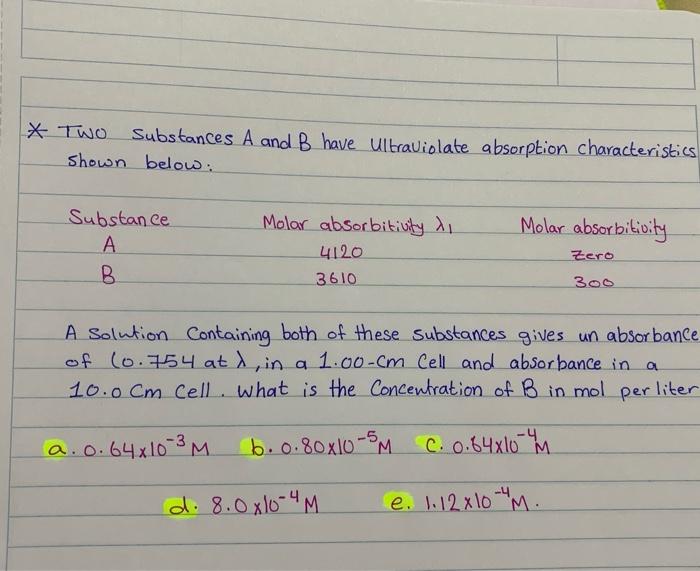 * Two Substances A and B have Ultraviolate absorption characteristics
shown below:
Substance Molar absorbitivity λ1 Molar absorbitivity
A 4120 Zero
B 3610 300
A Solution Containing both of these substances gives un absorbance
of (0.754 at λ, in a 1.00-Cm Cell and absorbance in a
10.0 Cm cell. What is the Concentration of B in mol per liter
a. 0.64x10⁻³ M b. 0.80x10⁻⁵ M C. 0.64x10⁻⁴ M
d. 8.0 x10⁻⁴ M e. 1.12 x10⁻⁴ M.